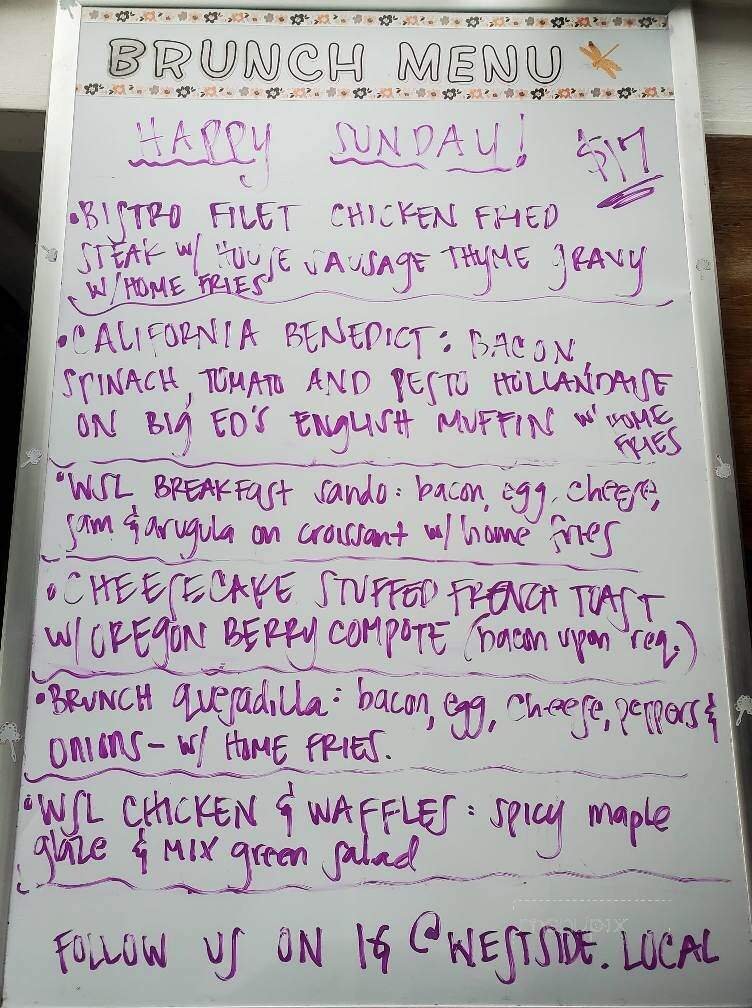 BRUNCH MENU
HAPPY SUNDAY! $17
•BISTRO FILET CHICKEN FRIED
STEAK W/ HOUSE SAUSAGE THYME GRAVY
W/HOME FRIES
•CALIFORNIA BENEDICT: BACON,
SPINACH, TOMATO AND PESTO HOLLANDAISE
ON BIG ED'S ENGLISH MUFFIN W/ HOME
FRIES
•WSL BREAKFAST sando: bacon, egg, cheese,
jam & arugula on croissant w/ home fries
•CHEESECAKE STUFFED FRENCH TOAST
W/ OREGON BERRY COMPOTE (bacon upon req.)
•BRUNCH quesadilla: bacon, egg, cheese, peppers &
ONIONS - W/ HOME FRIES.
•WSL CHICKEN & WAFFLES: spicy maple
glaze & MIX green salad
FOLLOW US ON IG @WESTSIDE.LOCAL